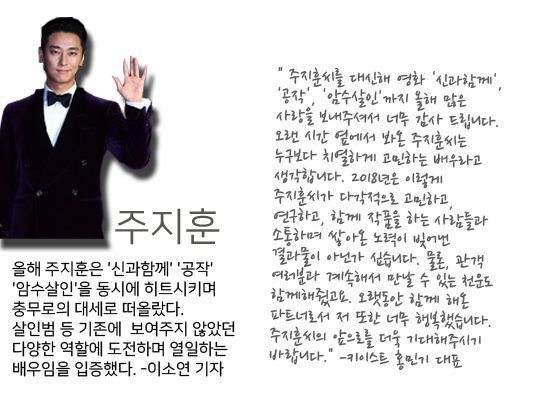 주지훈
올해 주지훈은 '신과함께' '공작'
'암수살인'을 동시에 히트시키며
충무로의 대세로 떠올랐다.
살인범 등 기존에 보여주지 않았던
다양한 역할에 도전하며 열일하는
배우임을 입증했다. -이소연 기자
" 주지훈씨를 대신해 영화 '신과함께',
'공작', '암수살인'까지 올해 많은
사랑을 보내주셔서 너무 감사 드립니다.
오랜 시간 옆에서 봐온 주지훈씨는
누구보다 치열하게 고민하는 배우라고
생각합니다. 2018년은 이렇게
주지훈씨가 다각적으로 고민하고,
연구하고, 함께 작품을 하는 사람들과
소통하며 쌓아온 노력이 빚어낸
결과물이 아닌가 싶습니다. 물론, 관객
여러분과 계속해서 만날 수 있는 천운도
함께해줬고요. 오랫동안 함께 해온
파트너로서 저 또한 너무 행복했습니다.
주지훈씨의 앞으로를 더욱 기대해주시기
바랍니다." -키이스트 홍민기 대표